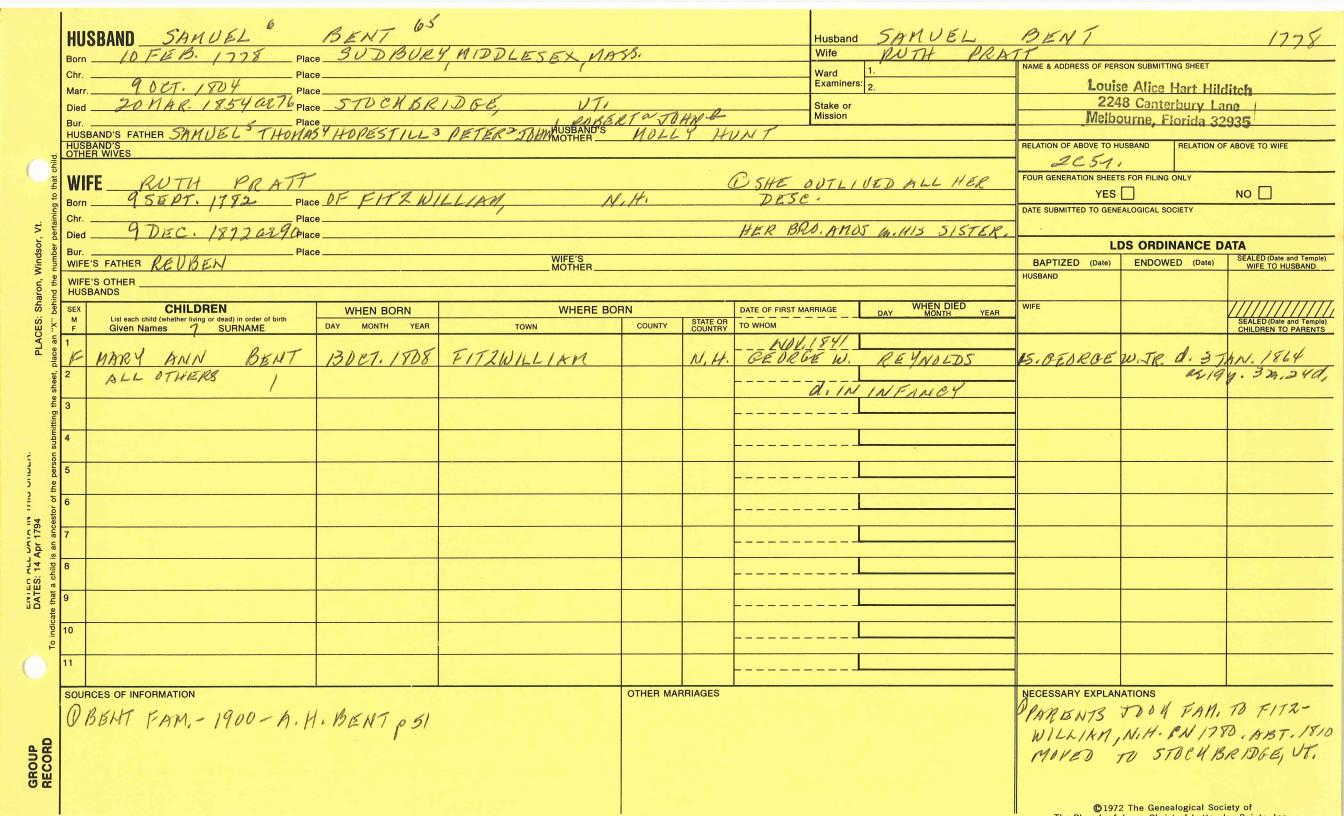 HUSBAND SAMUEL 6 BENT 65
Born 10 FEB. 1778 Place SUDBURY, MIDDLESEX, MASS.
Chr. Place
Marr. 9 OCT. 1804 Place
Died 20 MAR. 1854 ae76 Place STOCKBRIDGE, VT.
Bur. Place ROBERT JOHN
HUSBAND'S FATHER SAMUEL5 THOMAS4 HOPESTILL3 PETER2 JOHN HUSBAND'S MOTHER MOLLY HUNT
HUSBAND'S OTHER WIVES
Husband SAMUEL BENT 1778
Wife RUTH PRATT
Ward Examiners: 1.
2.
Stake or Mission
NAME & ADDRESS OF PERSON SUBMITTING SHEET
Louise Alice Hart Hilditch
2248 Canterbury Lane
Melbourne, Florida 32935
RELATION OF ABOVE TO HUSBAND RELATION OF ABOVE TO WIFE
2C5r.
FOUR GENERATION SHEETS FOR FILING ONLY
YES NO
DATE SUBMITTED TO GENEALOGICAL SOCIETY
WIFE RUTH PRATT ① SHE OUTLIVED ALL HER
Born 9 SEPT. 1782 Place OF FITZWILLIAM, N.H. DESC.
Chr. Place
Died 9 DEC. 1872 ae90 Place HER BRO. AMOS m. HIS SISTER.
Bur. Place
WIFE'S FATHER REUBEN WIFE'S MOTHER
WIFE'S OTHER HUSBANDS
LDS ORDINANCE DATA
BAPTIZED (Date) ENDOWED (Date) SEALED (Date and Temple) WIFE TO HUSBAND
HUSBAND
WIFE
SEALED (Date and Temple) CHILDREN TO PARENTS
SEX M F CHILDREN
List each child (whether living or dead) in order of birth
Given Names 7 SURNAME
WHEN BORN
DAY MONTH YEAR
WHERE BORN
TOWN COUNTY STATE OR COUNTRY
DATE OF FIRST MARRIAGE
TO WHOM
WHEN DIED
DAY MONTH YEAR
1 NOV. 1841
F MARY ANN BENT 13 OCT. 1808 FITZWILLIAM N.H. GEORGE W. REYNOLDS S. GEORGE W. JR. d. 3 JAN. 1864
2 ALL OTHERS ae19y. 3m. 24d.
d. IN INFANCY
3
4
5
6
7
8
9
10
11
SOURCES OF INFORMATION
① BENT FAM. - 1900 - A.H. BENT p 51
OTHER MARRIAGES
NECESSARY EXPLANATIONS
① PARENTS TOOK FAM. TO FITZ-
WILLIAM, N.H. IN 1780. ABT. 1810
MOVED TO STOCKBRIDGE, VT.
©1972 The Genealogical Society of
PLACES: Sharon, Windsor, Vt.
To indicate that a child is an ancestor of the person submitting the sheet, place an "X" behind the number pertaining to that child.
DATES: 14 Apr 1794
GROUP RECORD